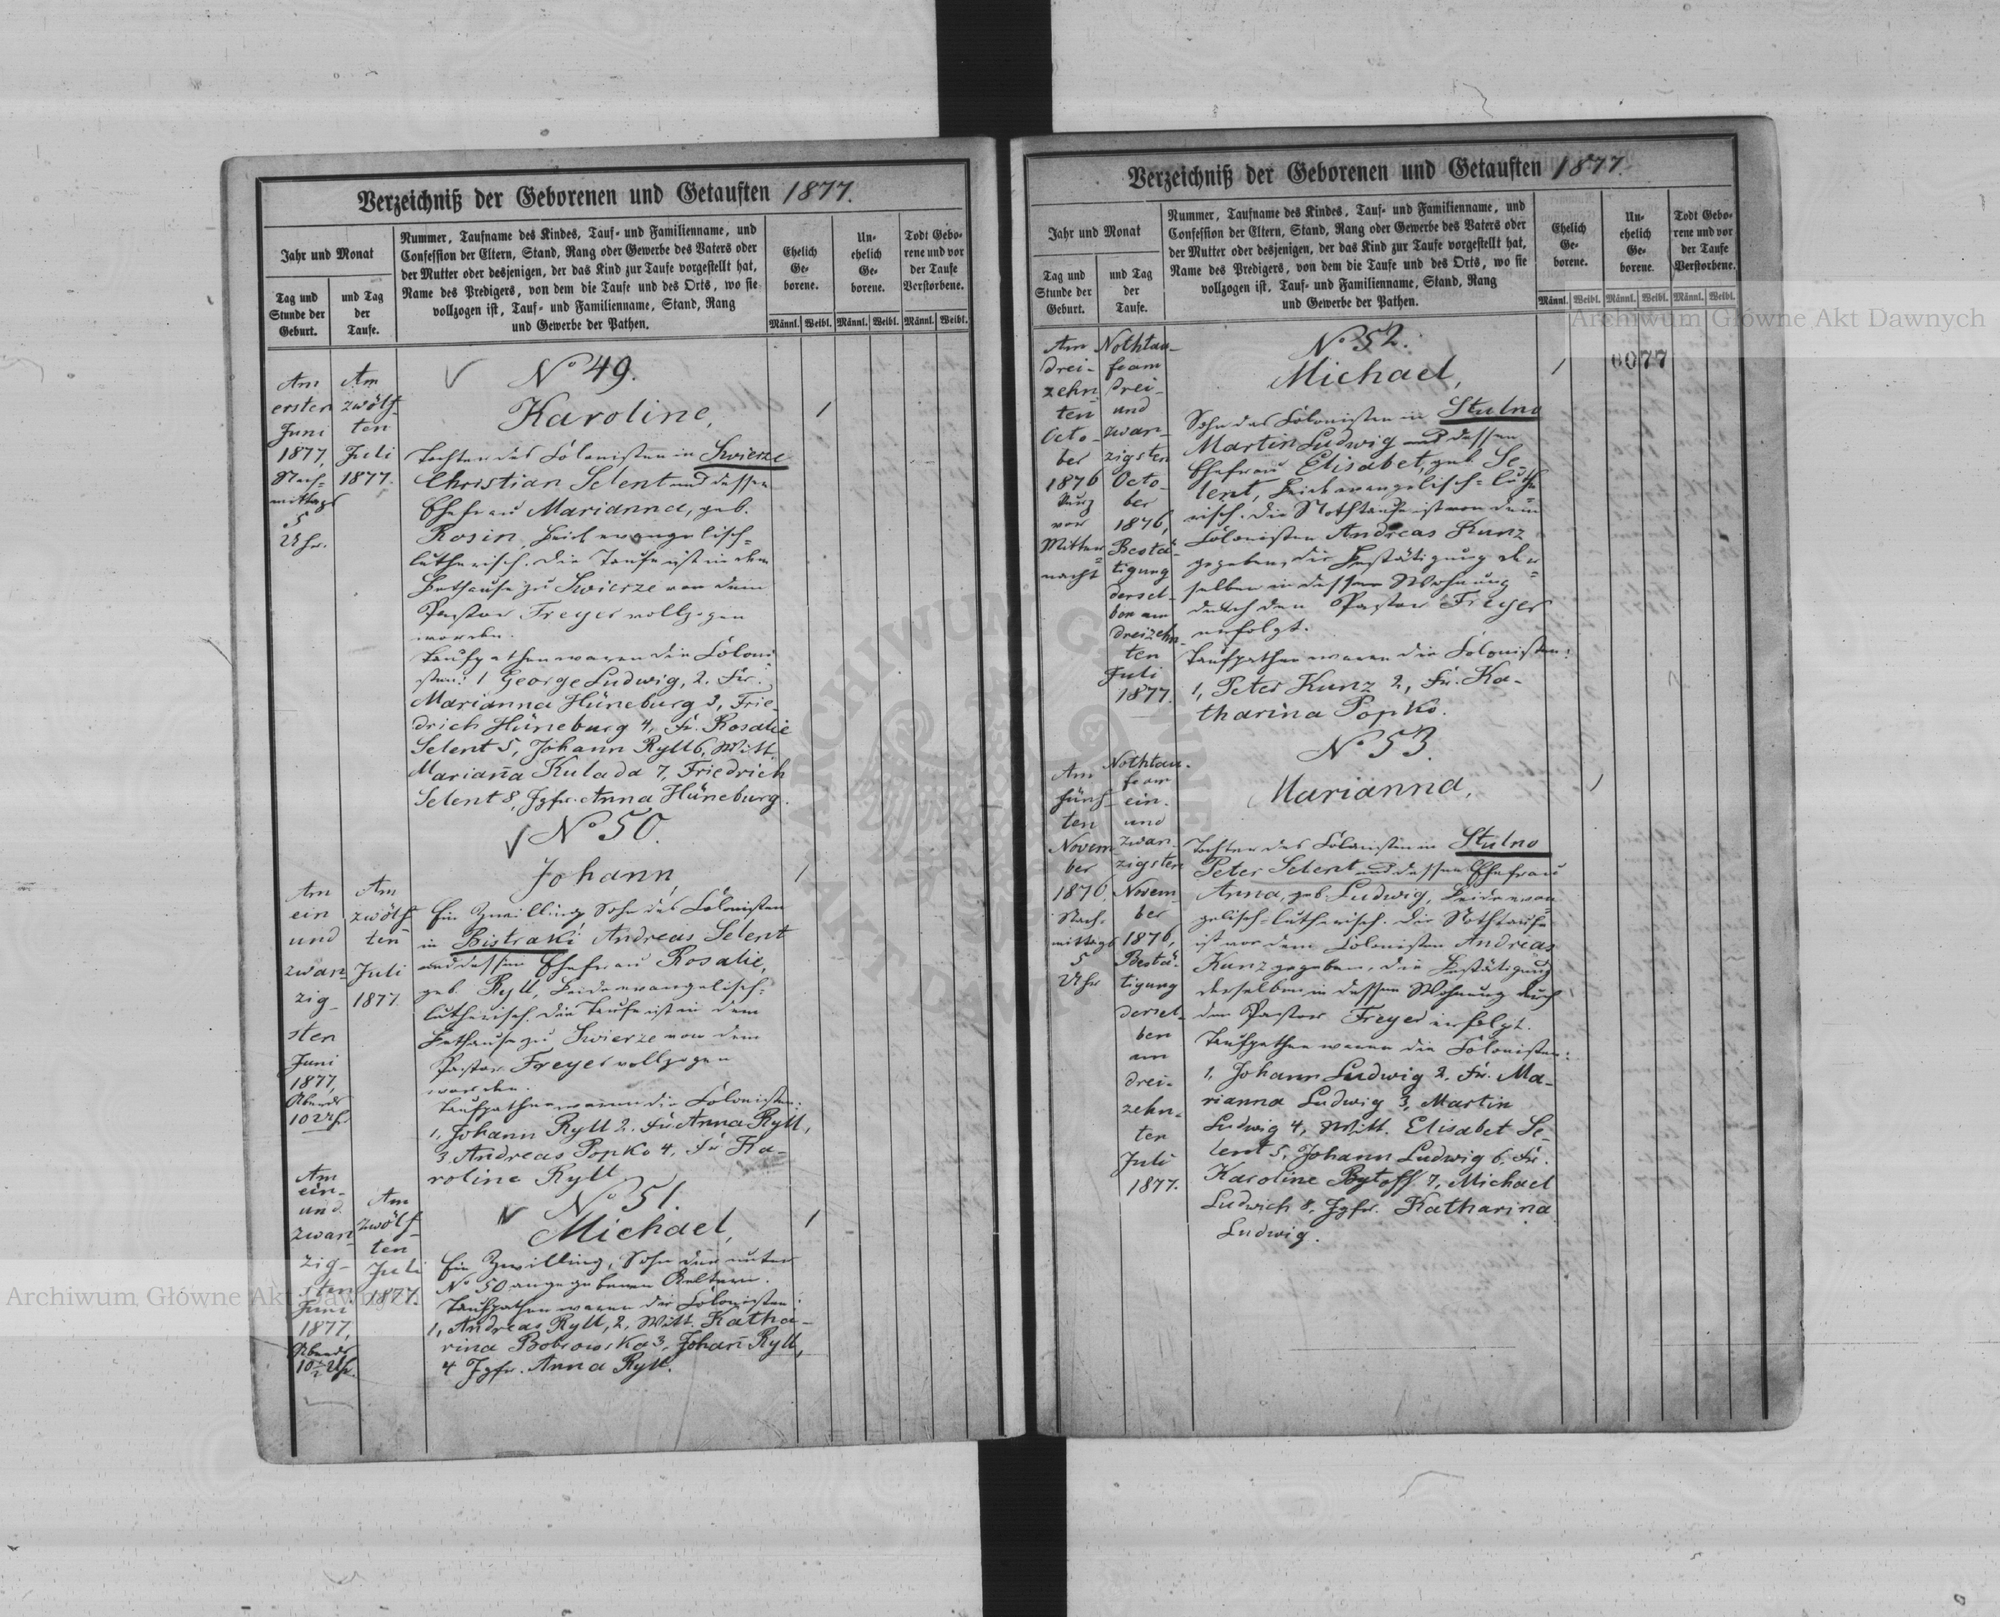 Verzeichniß der Geborenen und Getauften 1877.
Jahr und Monat
Tag und
Stunde der
Geburt.
und Tag
der
Taufe.
Nummer, Taufname des Kindes, Tauf- und Familienname, und
Confession der Eltern, Stand, Rang oder Gewerbe des Vaters oder
der Mutter oder desjenigen, der das Kind zur Taufe vorgestellt hat,
Name des Predigers, von dem die Taufe und des Orts, wo sie
vollzogen ist, Tauf- und Familienname, Stand, Rang
und Gewerbe der Pathen.
Ehelich
Ge-
borene.
Un-
ehelich
Ge-
borene.
Todt Gebo-
rene und vor
der Taufe
Verstorbene.
Männl. Weibl. Männl. Weibl. Männl. Weibl.
Am
ersten
Juni
1877,
Nach-
mittags
5
Uhr.
Am
zwölf-
ten
Juli
1877.
No 49.
Karoline,
1
Tochter des Colonisten in Swierze
Christian Selent und dessen
Ehefrau Marianna, geb.
Rosin, beide evangelisch-
lutherisch. Die Taufe ist in dem
Bethause zu Swierze von dem
Pastor Freyer vollzogen
worden.
Taufpathen waren die Coloni-
sten: 1 George Ludwig, 2. Fr.
Marianna Hüneburg 3, Frie-
drich Hüneburg 4, Fr. Rosalie
Selent 5, Johann Ryll 6, Witt.
Mariana Kulada 7, Friedrich
Selent 8, Jgfr. Anna Hüneburg.
No 50.
Johann,
1
Am
ein
und
zwan
zig-
sten
Juni
1877,
Abends
10 Uhr
Am
zwölf
ten
Juli
1877.
Ein Zwilling Sohn des Colonisten
in Bistraki Andreas Selent
und dessen Ehefrau Rosalie,
geb. Ryll, beide evangelisch-
lutherisch. Die Taufe ist in dem
Bethause zu Swierze von dem
Pastor Freyer vollzogen
worden.
Taufpathen waren die Colonisten:
1, Johann Ryll 2. Fr. Anna Ryll,
3. Andreas Popko 4, Fr Ka-
roline Ryll
No 51.
Michael,
1
Am
ein-
und
zwan-
zig-
sten
Juni
1877,
Abends
10½ Uhr.
Am
zwölf-
ten
Juli
1877.
Ein Zwilling, Sohn der unter
No 50 angegebenen Aeltern.
Taufpathen waren die Colonisten:
1, Andreas Ryll, 2, Witt. Katha-
rina Bobrowska 3, Johan Ryll,
4 Jgfr. Anna Ryll.
Verzeichniß der Geborenen und Getauften 1877.
Jahr und Monat
Tag und
Stunde der
Geburt.
und Tag
der
Taufe.
Nummer, Taufname des Kindes, Tauf- und Familienname, und
Confession der Eltern, Stand, Rang oder Gewerbe des Vaters oder
der Mutter oder desjenigen, der das Kind zur Taufe vorgestellt hat,
Name des Predigers, von dem die Taufe und des Orts, wo sie
vollzogen ist, Tauf- und Familienname, Stand, Rang
und Gewerbe der Pathen.
Ehelich
Ge-
borene.
Un-
ehelich
Ge-
borene.
Todt Gebo-
rene und vor
der Taufe
Verstorbene.
Männl. Weibl. Männl. Weibl. Männl. Weibl.
Am
drei-
zehn
ten
Octo-
ber
1876
kurz
vor
Mitter
nacht
Nothtau-
fe am
drei-
und
zwan-
zigsten
Octo-
ber
1876,
Bestä-
tigung
dersel-
ben am
dreizehn-
ten
Juli
1877.
No 52.
Michael,
1
6077
Sohn des Colonisten in Stulno
Martin Ludwig und dessen
Ehefrau Elisabet, geb. Se-
lent, beide evangelisch-luthe
risch. Die Nothtaufe ist von dem
Colonisten Andreas Kunz
gegeben, die Bestätigung der-
selben in dessen Wohnung
durch den Pastor Freyer
erfolgt.
Taufpathen waren die Colonisten:
1, Peter Kunz 2, Fr. Ka-
tharina Popko.
No 53.
Marianna,
1
Am
fünf-
ten
Novem
ber
1876
Nach-
mittags
5
Uhr
Nothtau-
fe am
ein-
und
zwan-
zigsten
Novem
ber
1876,
Bestä-
tigung
dersel-
ben
am
drei-
zehn-
ten
Juli
1877.
Tochter des Colonisten in Stulno
Peter Selent und dessen Ehefrau
Anna, geb. Ludwig, beide evan-
gelisch-lutherisch. Die Nothtaufe
ist von dem Colonisten Andreas
Kunz gegeben, die Bestätigung
derselben in dessen Wohnung durch
den Pastor Freyer erfolgt.
Taufpathen waren die Colonisten:
1, Johann Ludwig 2, Fr. Ma-
rianna Ludwig 3, Martin
Ludwig 4, Witt. Elisabet Se-
lent 5, Johann Ludwig 6, Fr.
Karoline Rytoff 7, Michael
Ludwich 8, Jgfr. Katharina
Ludwig.
Archiwum Główne Akt Dawnych
Archiwum Główne Akt Dawnych